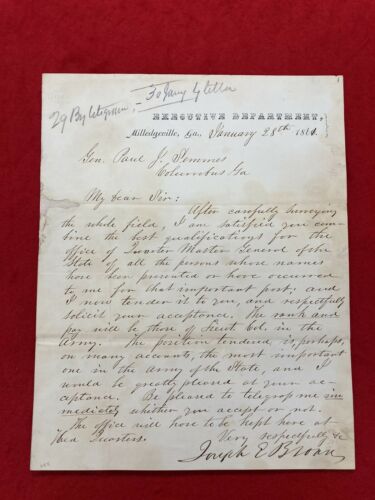 29 By telegram, – 30 Jany by letter
EXECUTIVE DEPARTMENT,
Milledgeville, Ga., January 28th 1861.
Gen. Paul J. Semmes
Columbus Ga
My dear Sir:
After carefully surveying
the whole field, I am satisfied you com-
bine the best qualifications for the
office of Quarter Master General of the
State of all the persons whose names
have been presented or have occurred
to me for that important post; and
I now tender it to you, and respectfully
solicit your acceptance. The rank and
pay will be those of Lieut Col. in the
Army. The position tendered is, perhaps,
on many accounts, the most important
one in the army of the State, and I
would be greatly pleased at your ac-
ceptance. Be pleased to telegrap me im
mediately whether you accept or not.
The office will have to be kept here at
Head Quarters.
Very respectfully &c
Joseph E Brown